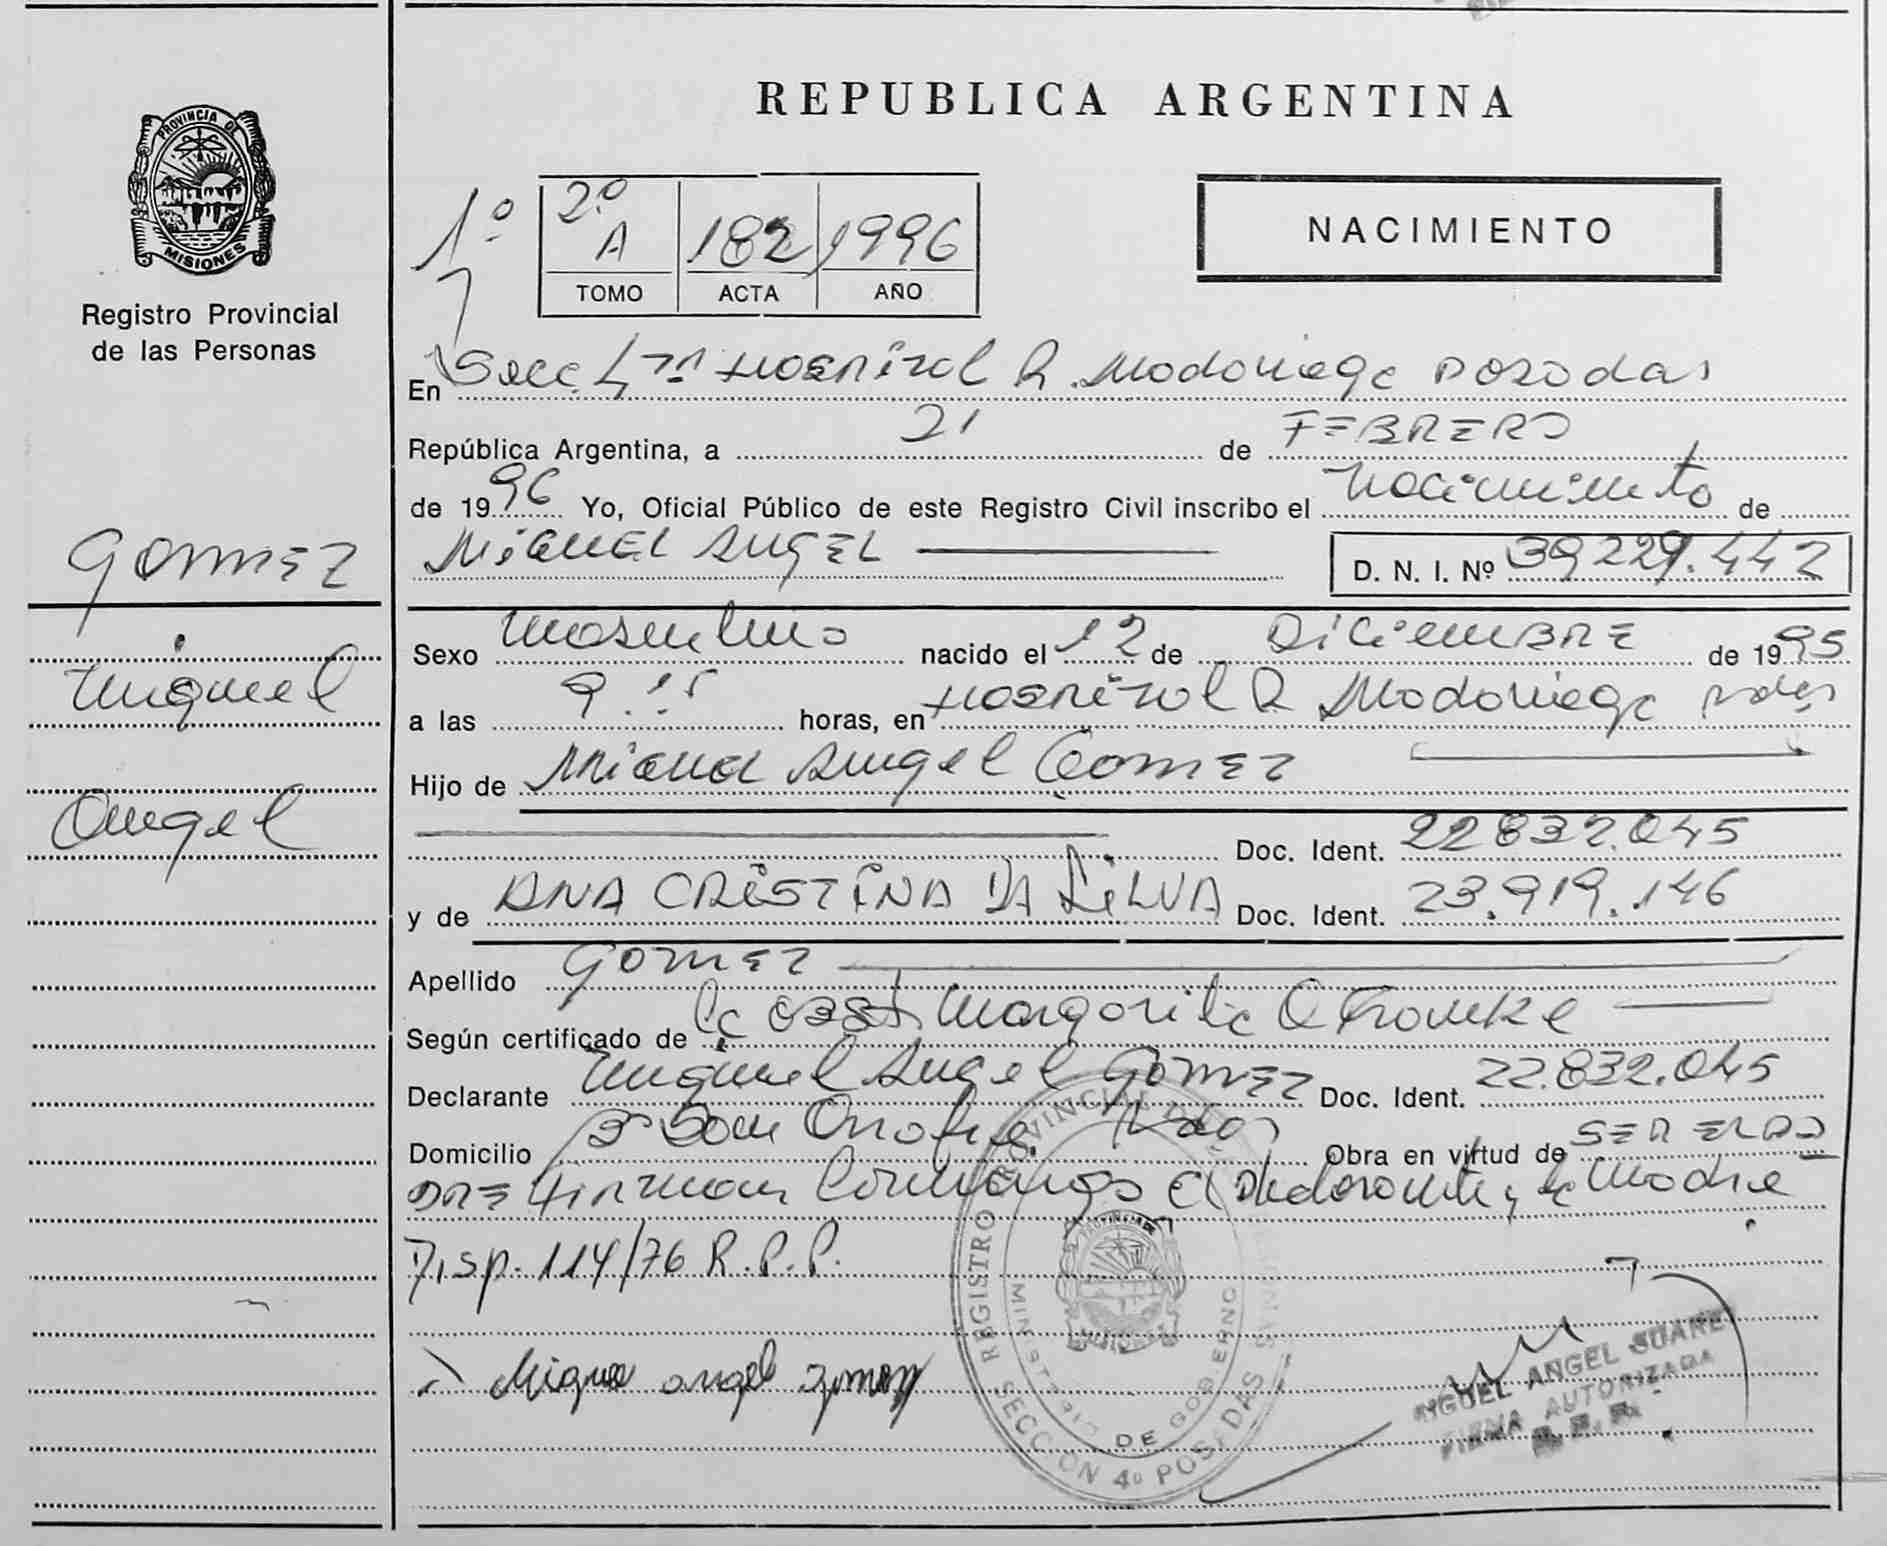 REPUBLICA ARGENTINA
PROVINCIA DE MISIONES
Registro Provincial
de las Personas
1º
2º A 182 1996
TOMO ACTA AÑO
NACIMIENTO
En Secc 4ta Hospital R. Madariaga Posadas
República Argentina, a 21 de FEBRERO
de 1996 Yo, Oficial Público de este Registro Civil inscribo el Nacimiento de
MIGUEL ANGEL D. N. I. Nº 39.229.442
GOMEZ
Miguel
Angel
Sexo Masculino nacido el 12 de DICIEMBRE de 1995
a las 9.15 horas, en Hospital R Madariaga Pdas
Hijo de Miguel Angel Gomez
Doc. Ident. 22832.045
y de ANA CRISTINA DA SILVA Doc. Ident. 23.919.146
Apellido GOMEZ
Según certificado de la Obst Margarita
Declarante Miguel Angel GOMEZ Doc. Ident. 22.832.045
Domicilio Bº San Onofre Pdas Obra en virtud de SER EL PA
DRE Firman Conmigo El Declarante y la Madre
Disp. 114/76 R.P.P.
Miguel angel gomez
REGISTRO PROVINCIAL DE LAS PERSONAS
MINISTERIO DE GOBIERNO
SECCION 4º POSADAS
MISIONES
MIGUEL ANGEL SUAREZ
FIRMA AUTORIZADA
R. P. P.